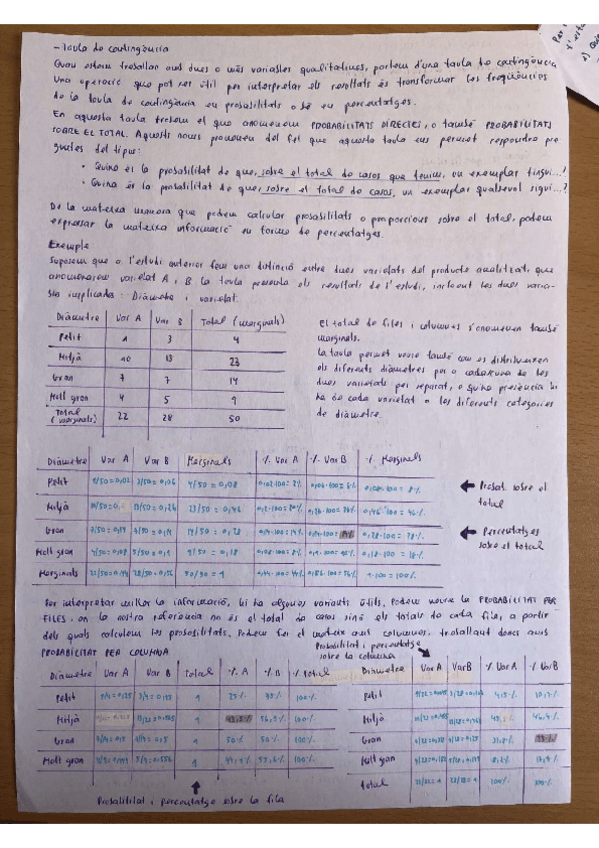 - Taula de contingència
Quan estem treballant amb dues o més variables qualitatives, partem d'una taula de contingència
Una operació que pot ser útil per interpretar els resultats és transformar les freqüències
de la taula de contingència en probabilitats o bé en percentatges.
En aquesta taula trobem el que anomenem PROBABILITATS DIRECTES, o també PROBABILITATS
SOBRE EL TOTAL. Aquests noms provenen del fet que aquesta taula ens permet respondre pre
guntes del tipus:
• Quina és la probabilitat de que, sobre el total de casos que tenim, un exemplar tingui...?
• Quina és la probabilitat de que, sobre el total de casos, un exemplar qualsevol sigui...?
De la mateixa manera que podem calcular probabilitats o proporcions sobre el total, podem
expressar la mateixa informació en forma de percentatges.
Exemple
Suposem que a l'estudi anterior fem una distinció entre dues varietats del producte analitzat, que
anomenarem varietat A i B la taula presenta els resultats de l'estudi, incloent les dues varia-
bles implicades: Diàmetre i varietat.
Diàmetre Var A Var B Total (marginals)
Petit 1 3 4
Mitjà 10 13 23
Gran 7 7 14
Molt gran 4 5 9
Total (marginals) 22 28 50
El total de files i columnes s'anomenen també
marginals.
La taula permet veure també com es distribueixen
els diferents diàmetres per a cadascuna de les
dues varietats per separat, o quina presència hi
ha de cada varietat a les diferents categories
de diàmetre.
Diàmetre Var A Var B Marginals % Var A % Var B % Marginals
Petit 1/50=0,02 3/50=0,06 4/50=0,08 0,02·100=2% 0,06·100=6% 0,08·100=8%
Mitjà 13/50=0,26 23/50=0,46 0,46·100=46%
Gran 7/50=0,14 7/50=0,14 14/50=0,28 0,14·100=14% 0,28·100=28%
Molt gran 4/50=0,08 5/50=0,1 9/50=0,18 0,18·100=18%
Marginals 22/50=0,44 28/50=0,56 50/50=1 0,44·100=44% 0,56·100=56% 1·100=100%
← Probab sobre el
total
← Percentatges
sobre el total
Per interpretar millor la informació, hi ha algunes variants útils. Podem veure la PROBABILITAT PER
FILES, on la nostra referència no és el total de casos sinó els totals de cada fila, a partir
dels quals calculem les probabilitats. Podem fer el mateix amb columnes, treballant doncs amb
PROBABILITAT PER COLUMNA
Probabilitat i percentatge
sobre la columna
Diàmetre Var A Var B Total % A % B % Total
Petit 1 25% 100%
Mitjà 1 100%
Gran 1 50% 50% 100%
Molt gran 1 100%
Probabilitat i percentatge sobre la fila
Diàmetre Var A Var B % Var A % Var B
Petit
Mitjà
Gran
Molt gran
Total 22/22=1 28/28=1 100% 100%